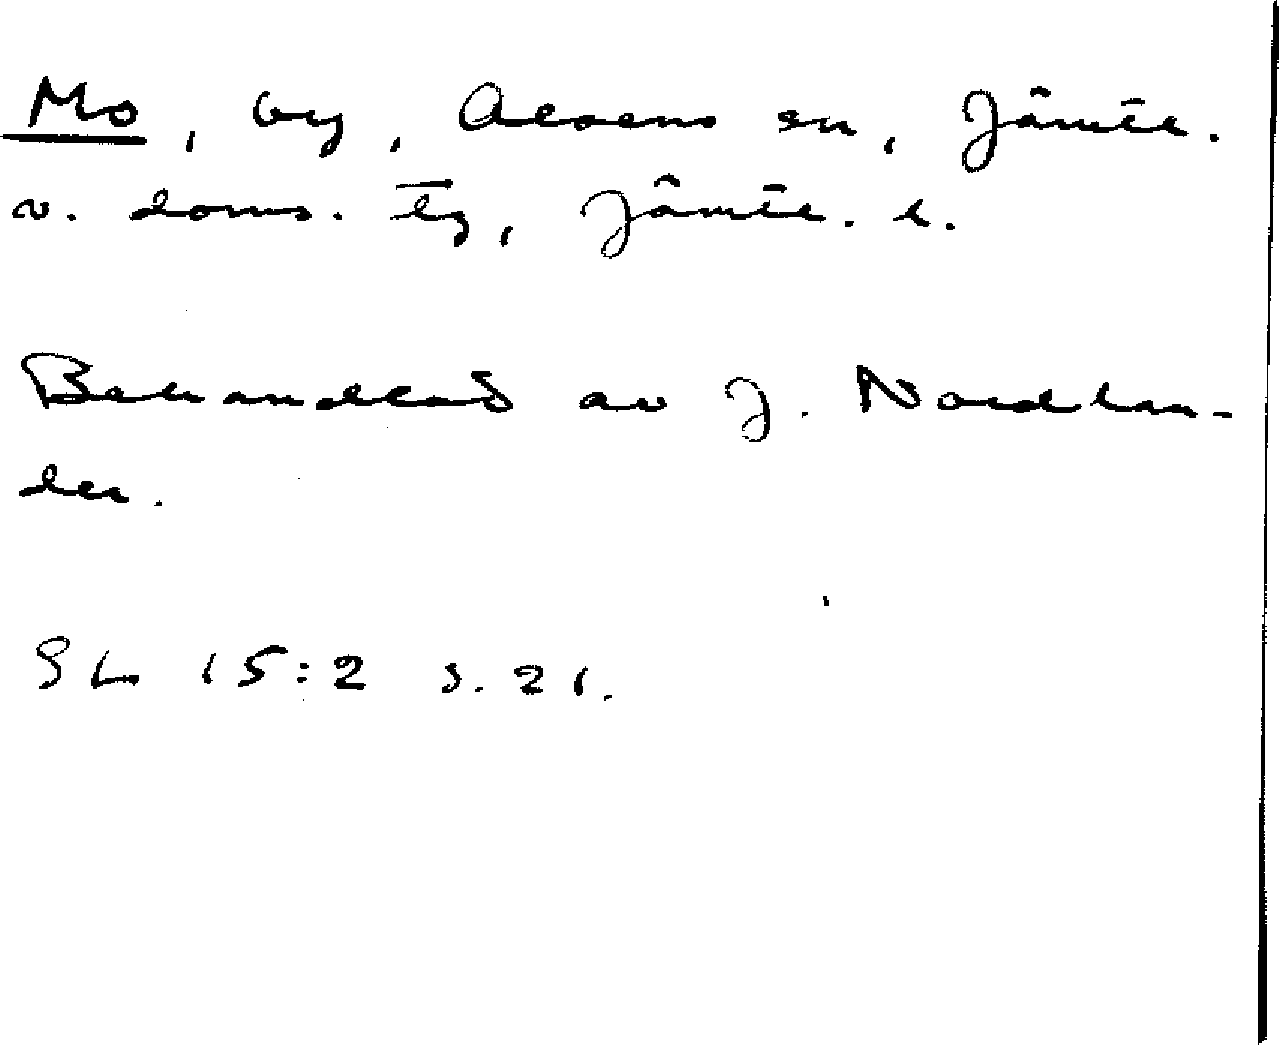 Mo, by, Alsens sn, Jämtl.
v. doms. tg, Jämtl. l.
Behandlad av J. Nordlan-
der.
SL 15:2 s. 21.